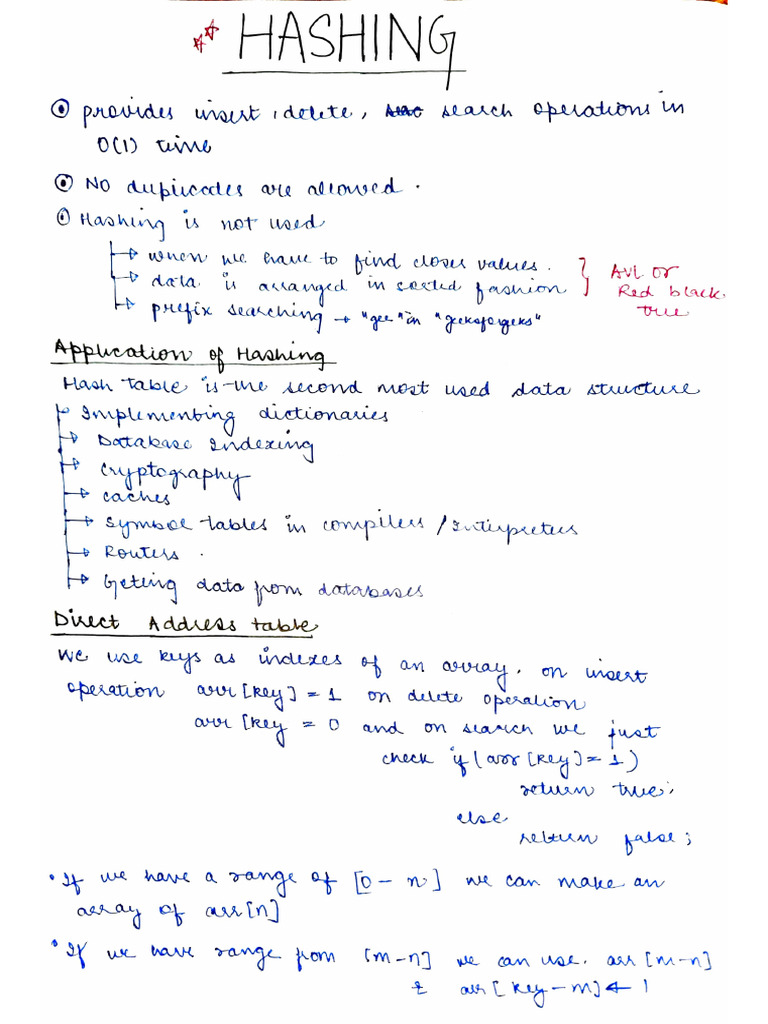 ** HASHING
provides insert, delete, search operations in
O(1) time
NO duplicates are allowed.
Hashing is not used
when we have to find closes values.
data is arranged in sorted fashion
prefix searching → "gee" in "geeksforgeeks"
AVL or
Red black
tree
Application of Hashing
Hash table is the second most used data structure
Implementing dictionaries
Database Indexing
Cryptography
caches
Symbol tables in compilers / Interpreters
Routers.
Geting data from databases
Direct Address table
We use keys as indexes of an array. on insert
operation arr[key] = 1 on delete operation
arr[key = 0 and on search we just
check if(arr[key] = 1)
return true;
else
return false;
• If we have a range of [0 - n] we can make an
array of arr[n]
• If we have range from [m-n] we can use. arr[m-n]
& arr[key-m] ← 1